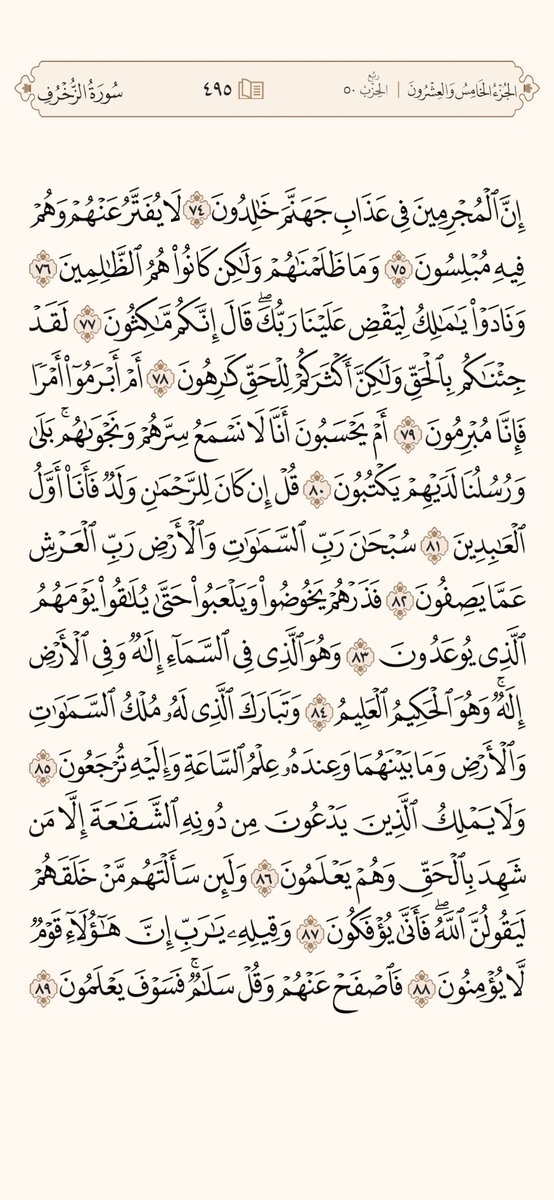 الجُزْءُ الخَامِسُ وَالعِشْرُونَ | رُبُع الحِزْب ٥٠ ٤٩٥ سُورَةُ الزُّخْرُفِ
إِنَّ ٱلْمُجْرِمِينَ فِى عَذَابِ جَهَنَّمَ خَٰلِدُونَ ٧٤ لَا يُفَتَّرُ عَنْهُمْ وَهُمْ
فِيهِ مُبْلِسُونَ ٧٥ وَمَا ظَلَمْنَٰهُمْ وَلَٰكِن كَانُوا۟ هُمُ ٱلظَّٰلِمِينَ ٧٦
وَنَادَوْا۟ يَٰمَٰلِكُ لِيَقْضِ عَلَيْنَا رَبُّكَ ۖ قَالَ إِنَّكُم مَّٰكِثُونَ ٧٧ لَقَدْ
جِئْنَٰكُم بِٱلْحَقِّ وَلَٰكِنَّ أَكْثَرَكُمْ لِلْحَقِّ كَٰرِهُونَ ٧٨ أَمْ أَبْرَمُوٓا۟ أَمْرًا
فَإِنَّا مُبْرِمُونَ ٧٩ أَمْ يَحْسَبُونَ أَنَّا لَا نَسْمَعُ سِرَّهُمْ وَنَجْوَىٰهُم ۚ بَلَىٰ
وَرُسُلُنَا لَدَيْهِمْ يَكْتُبُونَ ٨٠ قُلْ إِن كَانَ لِلرَّحْمَٰنِ وَلَدٌ فَأَنَا۠ أَوَّلُ
ٱلْعَٰبِدِينَ ٨١ سُبْحَٰنَ رَبِّ ٱلسَّمَٰوَٰتِ وَٱلْأَرْضِ رَبِّ ٱلْعَرْشِ
عَمَّا يَصِفُونَ ٨٢ فَذَرْهُمْ يَخُوضُوا۟ وَيَلْعَبُوا۟ حَتَّىٰ يُلَٰقُوا۟ يَوْمَهُمُ
ٱلَّذِى يُوعَدُونَ ٨٣ وَهُوَ ٱلَّذِى فِى ٱلسَّمَآءِ إِلَٰهٌ وَفِى ٱلْأَرْضِ
إِلَٰهٌ ۚ وَهُوَ ٱلْحَكِيمُ ٱلْعَلِيمُ ٨٤ وَتَبَارَكَ ٱلَّذِى لَهُۥ مُلْكُ ٱلسَّمَٰوَٰتِ
وَٱلْأَرْضِ وَمَا بَيْنَهُمَا وَعِندَهُۥ عِلْمُ ٱلسَّاعَةِ وَإِلَيْهِ تُرْجَعُونَ ٨٥
وَلَا يَمْلِكُ ٱلَّذِينَ يَدْعُونَ مِن دُونِهِ ٱلشَّفَٰعَةَ إِلَّا مَن
شَهِدَ بِٱلْحَقِّ وَهُمْ يَعْلَمُونَ ٨٦ وَلَئِن سَأَلْتَهُم مَّنْ خَلَقَهُمْ
لَيَقُولُنَّ ٱللَّهُ ۖ فَأَنَّىٰ يُؤْفَكُونَ ٨٧ وَقِيلِهِۦ يَٰرَبِّ إِنَّ هَٰٓؤُلَآءِ قَوْمٌ
لَّا يُؤْمِنُونَ ٨٨ فَٱصْفَحْ عَنْهُمْ وَقُلْ سَلَٰمٌ ۚ فَسَوْفَ يَعْلَمُونَ ٨٩